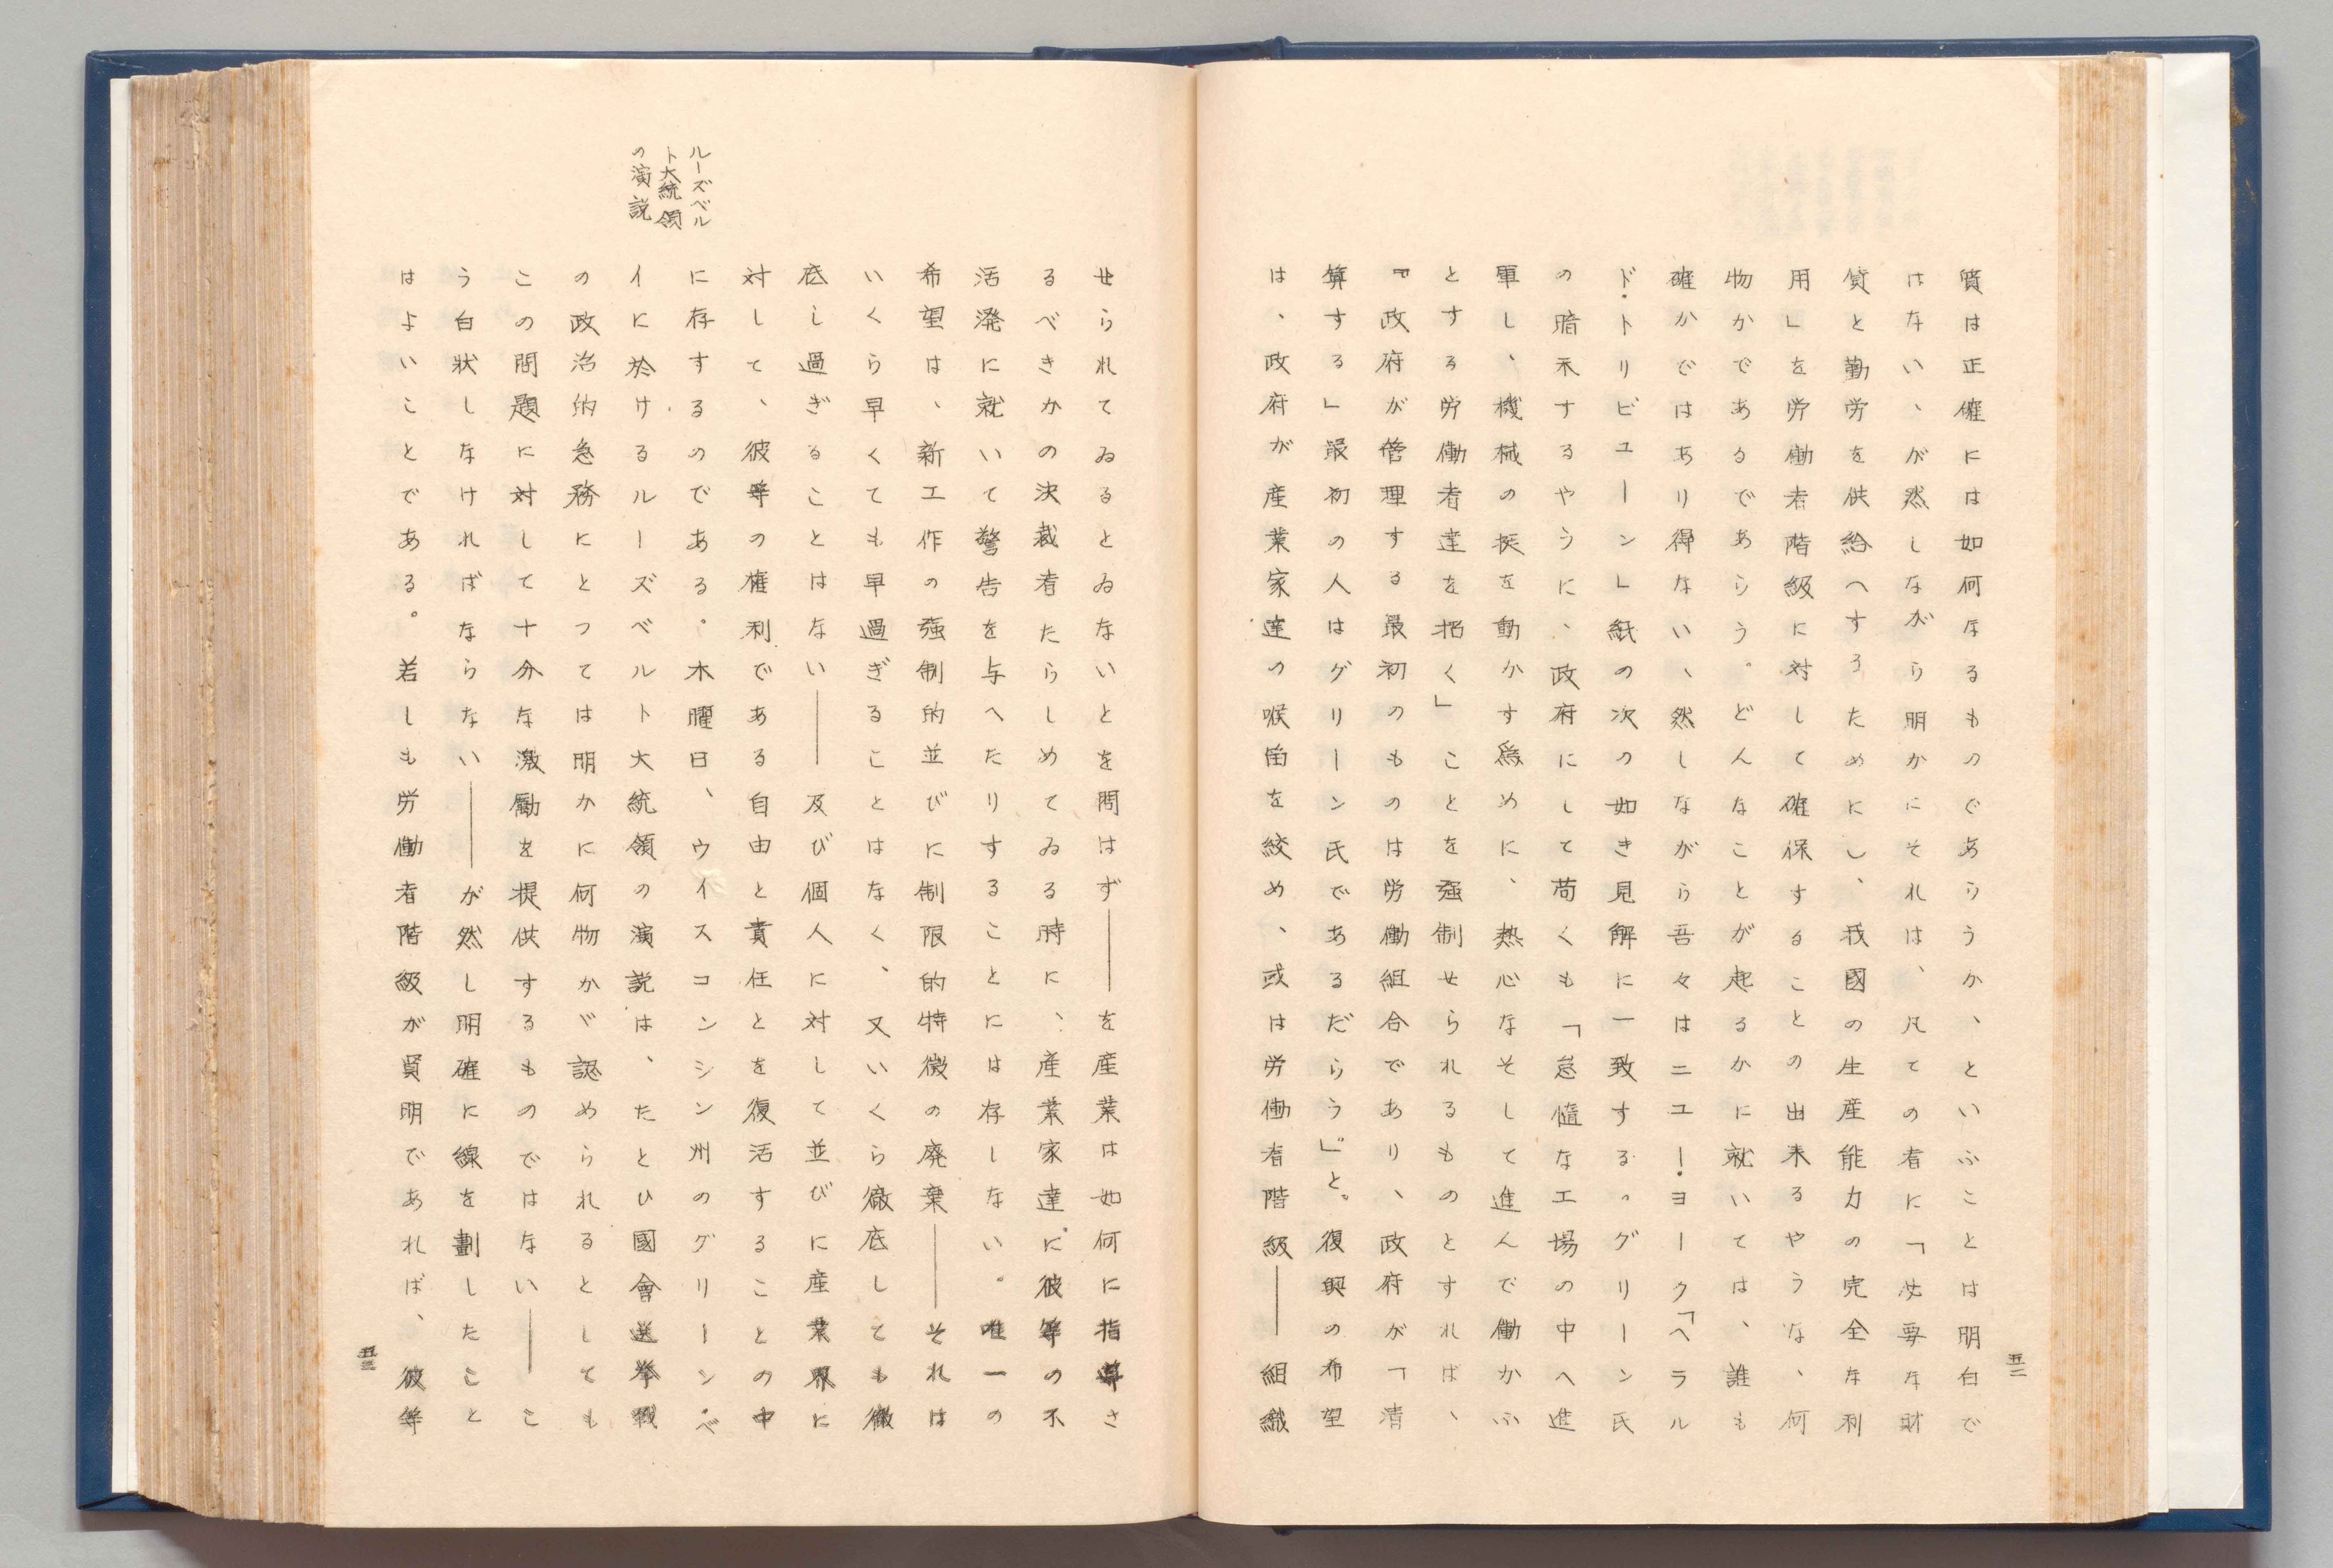 質は正確には如何なるものであらうか、といふことは明白で
はない、が然しながら明かにそれは、凡ての者に「必要な財
貨と勤労を供給へするためにし、我國の生産能力の完全な利
用」を労働者階級に対して確保することの出来るやうな、何
物かであるであらう。どんなことが起るかに就いては、誰も
確かではあり得ない、然しながら吾々はニユー・ヨーク「ヘラル
ド・トリビユーン」紙の次の如き見解に一致する。グリーン氏
の暗示するやうに、政府にして苟くも「怠惰な工場の中へ進
軍し、機械の挺を動かす爲めに、熱心なそして進んで働かふ
とする労働者達を招く」ことを強制せられるものとすれば、
『政府が管理する最初のものは労働組合であり、政府が「清
算する」最初の人はグリーン氏であるだらう』と。復興の希望
は、政府が産業家達の喉笛を絞め、或は労働者階級――組織
五二
せられてゐるとゐないとを問はず――を産業は如何に指導さ
るべきかの決裁者たらしめてゐる時に、産業家達に彼等の不
活溌に就いて警告を与へたりすることには存しない。唯一の
希望は、新工作の強制的並びに制限的特徴の廃棄――それは
いくら早くても早過ぎることはなく、又いくら徹底しても徹
底し過ぎることはない――及び個人に対して並びに産業界に
対して、彼等の権利である自由と責任とを復活することの中
に存するのである。木曜日、ウイスコンシン州のグリーン・ベ
ルーズベル
ト大統領
の演説
イに於けるルーズベルト大統領の演説は、たとひ國會選挙戦
の政治的急務にとつては明かに何物かゞ認められるとしても
この問題に対して十分な激勵を提供するものではない――こ
う白状しなければならない――が然し明確に線を劃したこと
はよいことである。若しも労働者階級が賢明であれば、彼等
五三